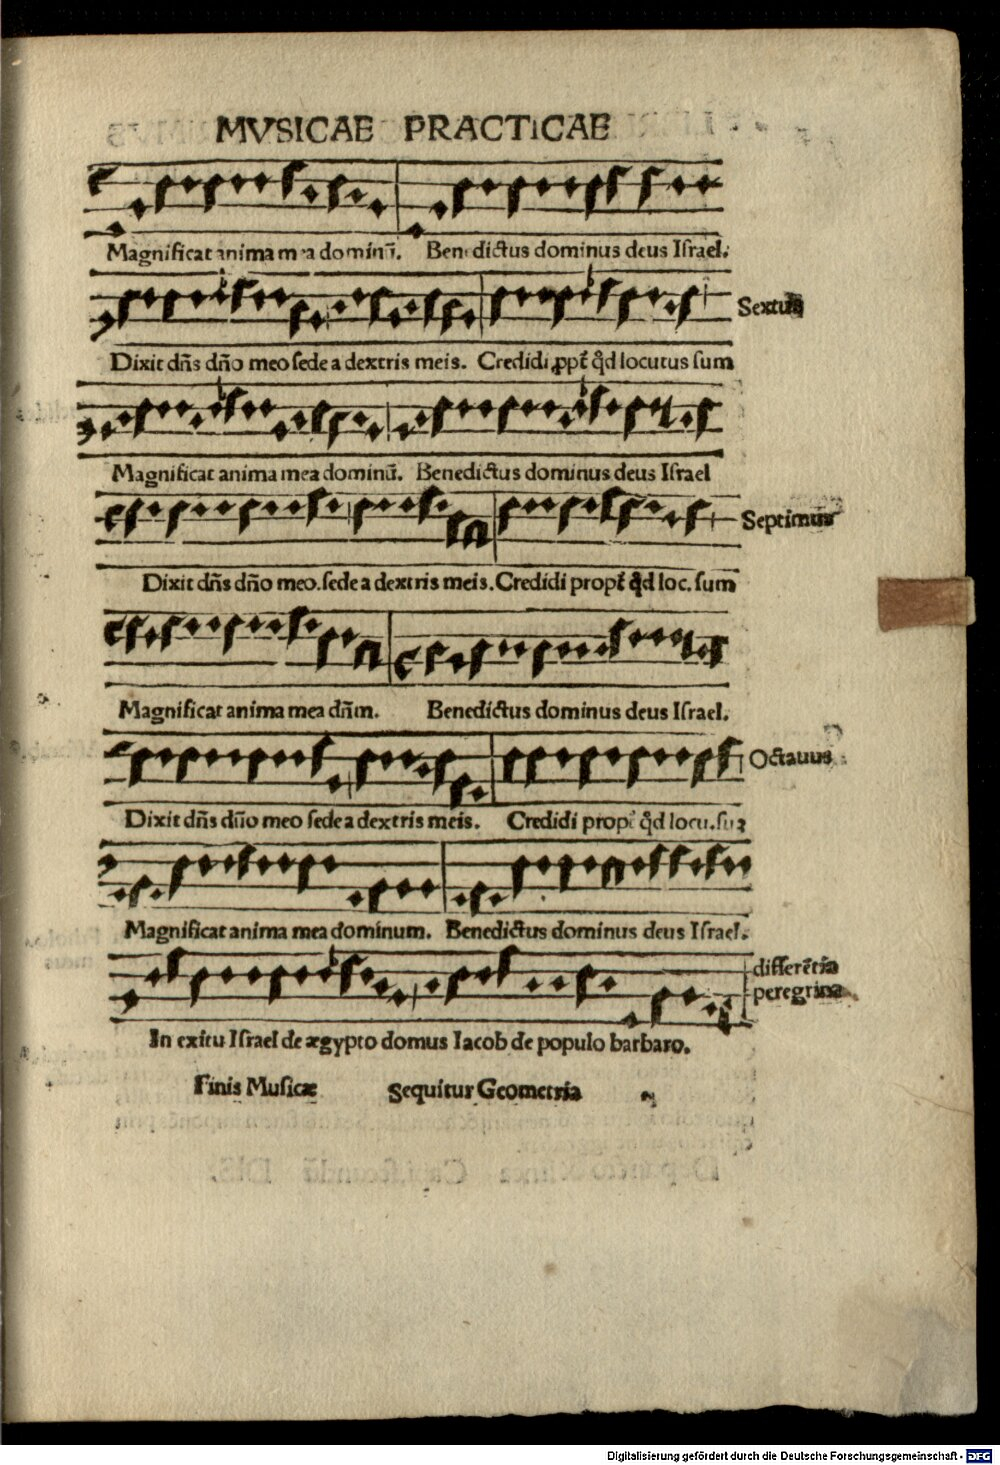 MVSICAE PRACTICAE
Magnificat anima mea dominū. Benedictus dominus deus Iſrael.
Sextus
Dixit dn̄s dn̄o meo ſede a dextris meis. Credidi ꝓpt̄ q̄d locutus ſum
Magnificat anima mea dominū. Benedictus dominus deus Iſrael
Septimus
Dixit dn̄s dn̄o meo. ſede a dextris meis. Credidi propt̄ q̄d loc. ſum
Magnificat anima mea dn̄m. Benedictus dominus deus Iſrael.
Octauus
Dixit dn̄s dn̄o meo ſede a dextris meis. Credidi propt̄ q̄d locu. ſuꝫ
Magnificat anima mea dominum. Benedictus dominus deus Iſrael.
differēt̄ia
peregrina
In exitu Iſrael de ægypto domus Iacob de populo barbaro.
Finis Muſicæ Sequitur Geometria
Digitalisierung gefördert durch die Deutsche Forschungsgemeinschaft - DFG